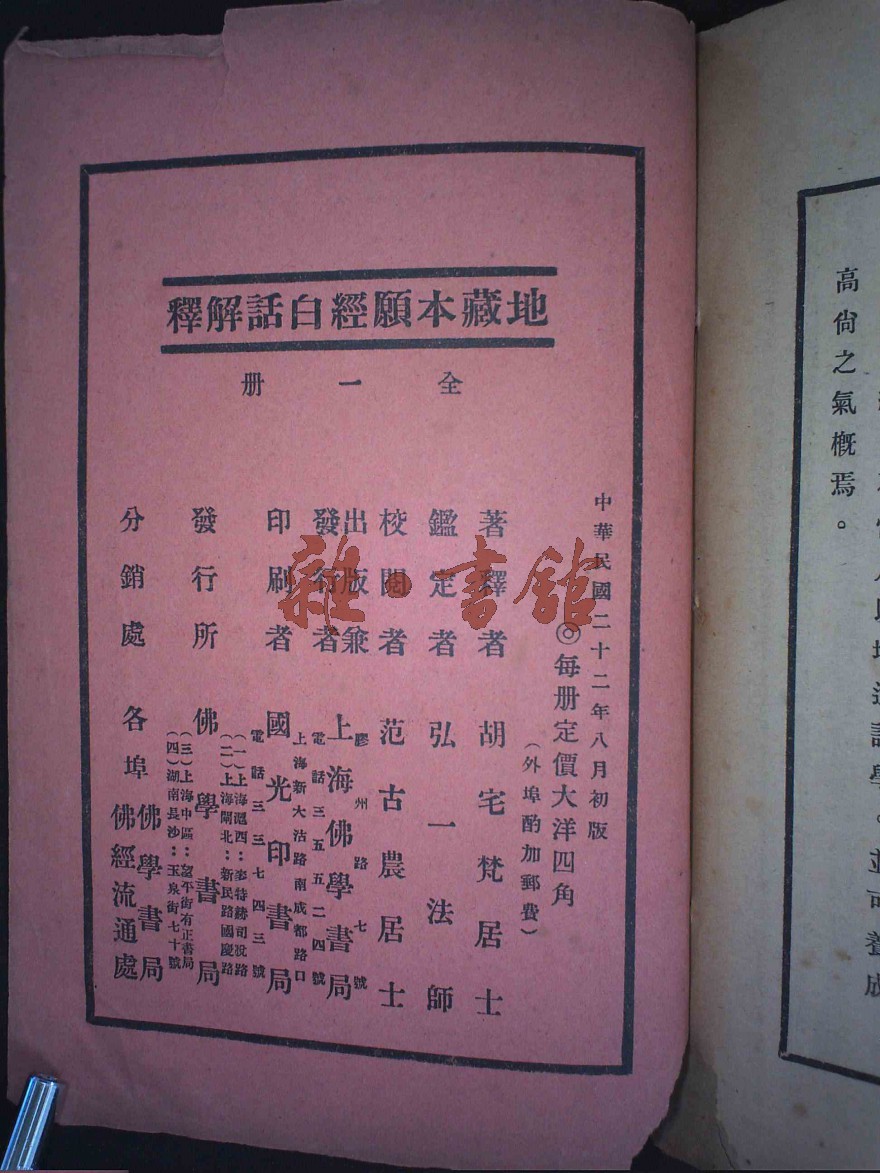 地藏本願經白話解釋
全一册
中華民國二十二年八月初版
◎每册定價大洋四角
（外埠酌加郵費）
著釋者 胡宅梵居士
鑑定者 弘一法師
校閱者 范古農居士
出版兼發行者 上海佛學書局
膠州路七號
電話三五五二四號
印刷者 國光印書局
上海新大沽路南成都路口
電話三三七四三號
發行所 佛學書局
（一）上海滬西：麥特赫司脫路
（二）上海閘北：新民路國慶路
（三）上海中區：望平街有正書局
（四）湖南長沙：玉泉街七十號
分銷處 各埠佛學書局
佛經流通處
高尙之氣概焉。
雜·書館